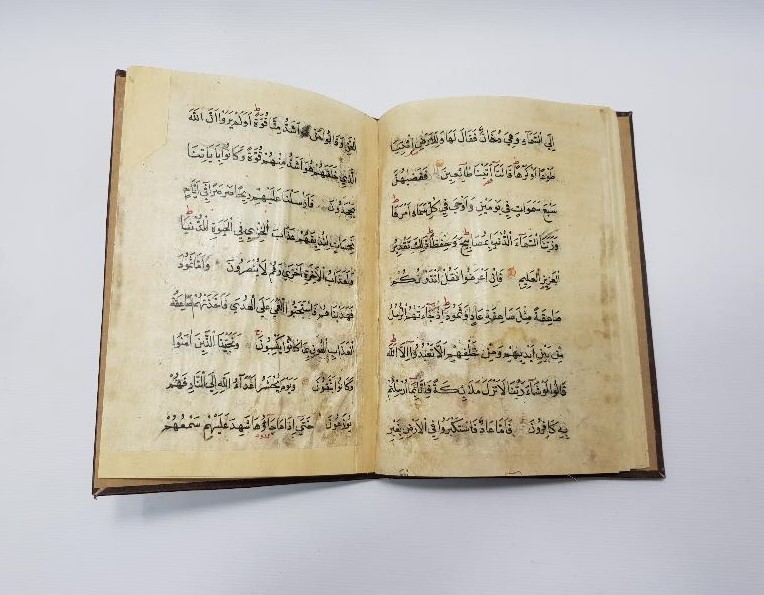 إِلَى السَّمَاءِ وَهِيَ دُخَانٌ فَقَالَ لَهَا وَلِلْأَرْضِ ائْتِيَا
طَوْعًا اَوْ كَرْهًا قَالَتَا اَتَيْنَا طَائِعِينَ فَقَضٰيهُنَّ
سَبْعَ سَمٰوَاتٍ فِي يَوْمَيْنِ وَاَوْحٰى فِي كُلِّ سَمَاءٍ اَمْرَهَا
وَزَيَّنَّا السَّمَاءَ الدُّنْيَا بِمَصَابِيحَ وَحِفْظًا ذٰلِكَ تَقْدِيرُ
الْعَزِيزِ الْعَلِيمِ فَاِنْ اَعْرَضُوا فَقُلْ اَنْذَرْتُكُمْ
صَاعِقَةً مِثْلَ صَاعِقَةِ عَادٍ وَثَمُودَ اِذْ جَاءَتْهُمُ الرُّسُلُ
مِنْ بَيْنِ اَيْدِيهِمْ وَمِنْ خَلْفِهِمْ اَلَّا تَعْبُدُوا اِلَّا اللّٰهَ
قَالُوا لَوْ شَاءَ رَبُّنَا لَاَنْزَلَ مَلَائِكَةً فَاِنَّا بِمَا اُرْسِلْتُمْ
بِهِ كَافِرُونَ فَاَمَّا عَادٌ فَاسْتَكْبَرُوا فِي الْاَرْضِ بِغَيْرِ
الْحَقِّ وَقَالُوا مَنْ اَشَدُّ مِنَّا قُوَّةً اَوَلَمْ يَرَوْا اَنَّ اللّٰهَ
الَّذِي خَلَقَهُمْ هُوَ اَشَدُّ مِنْهُمْ قُوَّةً وَكَانُوا بِاٰيَاتِنَا
يَجْحَدُونَ فَاَرْسَلْنَا عَلَيْهِمْ رِيحًا صَرْصَرًا فِي اَيَّامٍ
نَحِسَاتٍ لِنُذِيقَهُمْ عَذَابَ الْخِزْيِ فِي الْحَيٰوةِ الدُّنْيَا
وَلَعَذَابُ الْاٰخِرَةِ اَخْزٰى وَهُمْ لَا يُنْصَرُونَ وَاَمَّا ثَمُودُ
فَهَدَيْنَاهُمْ فَاسْتَحَبُّوا الْعَمٰى عَلَى الْهُدٰى فَاَخَذَتْهُمْ صَاعِقَةُ
الْعَذَابِ الْهُونِ بِمَا كَانُوا يَكْسِبُونَ وَنَجَّيْنَا الَّذِينَ اٰمَنُوا
وَكَانُوا يَتَّقُونَ وَيَوْمَ يُحْشَرُ اَعْدَاءُ اللّٰهِ اِلَى النَّارِ فَهُمْ
يُوزَعُونَ حَتّٰى اِذَا مَا جَاؤُهَا شَهِدَ عَلَيْهِمْ سَمْعُهُمْ